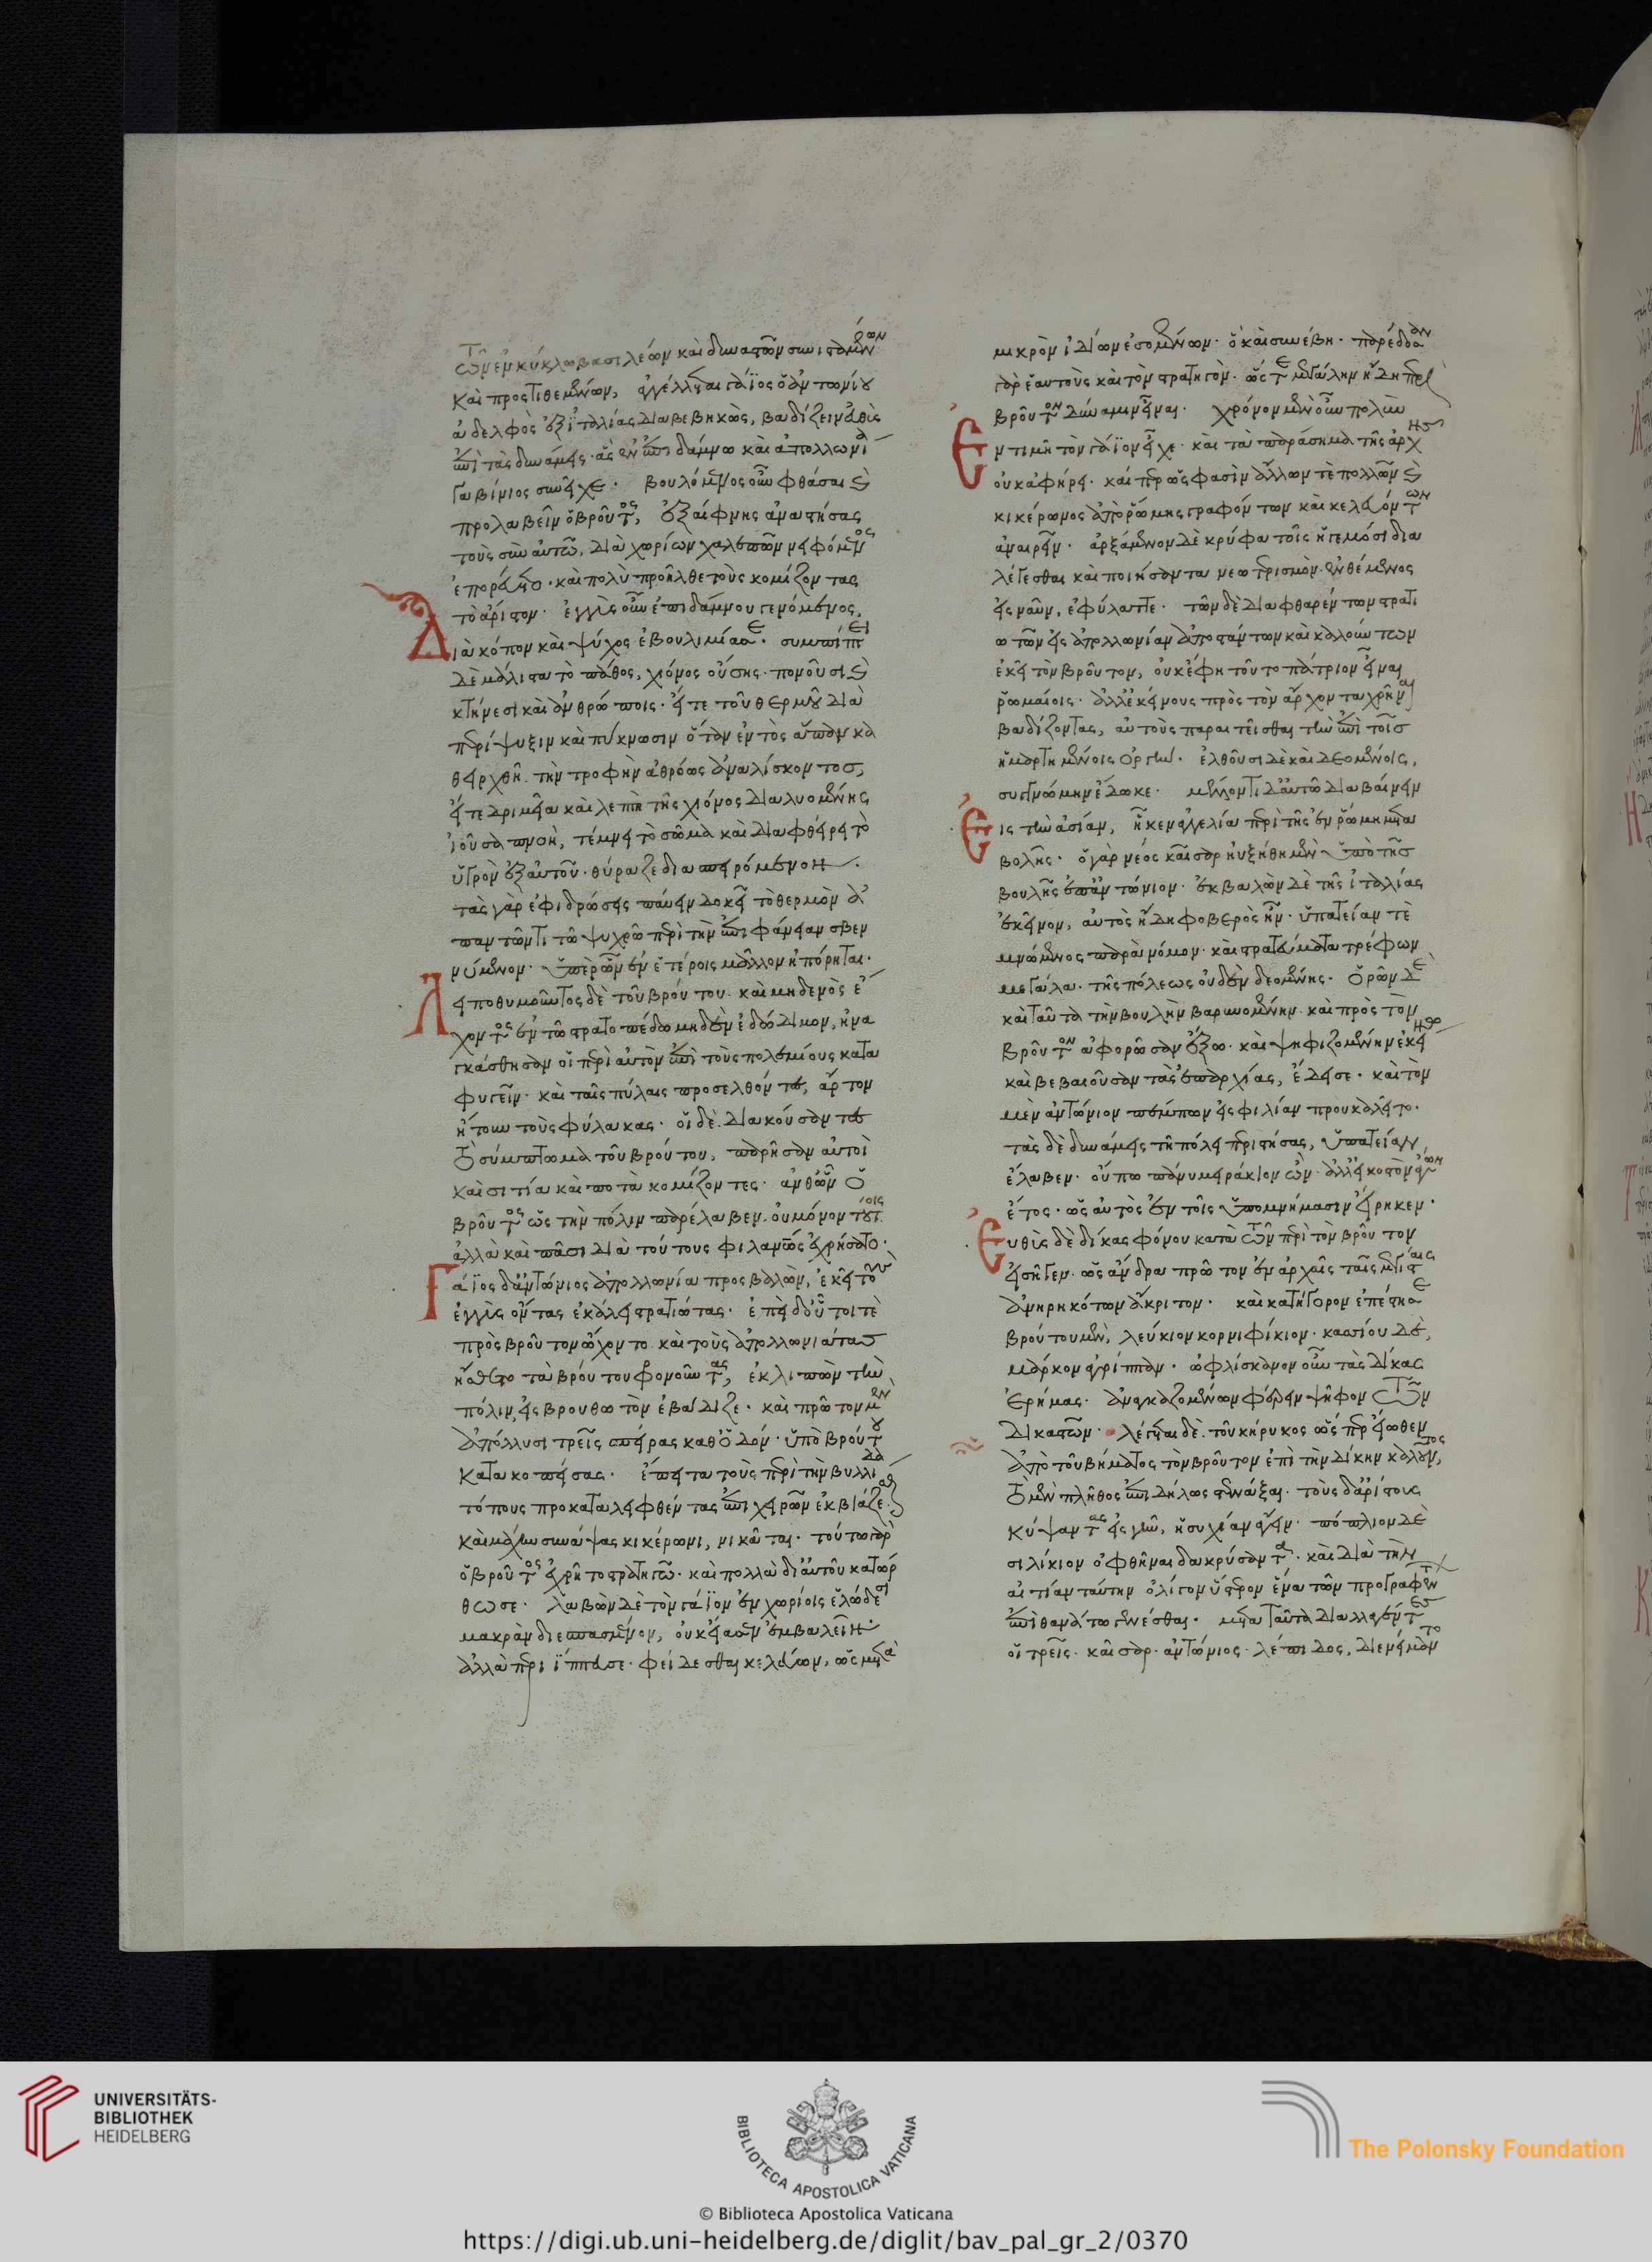 τῶν ἐν κύκλω βασιλέων καὶ δυναστῶν συνισταμένων
καὶ προστιθεμένων, ἀγγέλλεται γάϊος ὁ ἀντωνίου
ἀδελφὸς ἐξ ἰταλίας διαβεβηκὼς, βαδίζειν εὐθὺς
ἐπὶ τὰς δυνάμεις· ἃς ἐν ἐπιδάμνω καὶ ἀπολλωνία
γαβίνιος συνεῖχε· βουλόμενος οὖν φθάσαι καὶ
προλαβεῖν ὁ βροῦτος, ἐξαίφνης ἀναστήσας
τοὺς σὺν αὐτῶ, διὰ χωρίων χαλεπῶν νιφόμενος
ἐπορεύετο· καὶ πολὺ προῆλθε τοὺς κομίζοντας
τὸ ἄριστον· ἐγγὺς οὖν ἐπιδάμνου γενόμενος,
Διὰ κόπον καὶ ψύχος ἐβουλιμίασε· συμπίπτει
δὲ μάλιστα τὸ πάθος, χιόνος οὔσης· πονοῦσι καὶ
κτήνεσι καὶ ἀνθρώποις· εἴτε τοῦ θερμοῦ διὰ
περίψυξιν καὶ πύκνωσιν ὅταν ἐντὸς ἅπαν κα
θειρχθῆ τὴν τροφὴν ἀθρόως ἀναλίσκοντος,
εἴτε δριμεῖα καὶ λεπτὴ τῆς χιόνος διαλυομένης
ἰοῦσα πνοὴ, τέμνει τὸ σῶμα καὶ διαφθείρει τὸ
ὑγρὸν ἐξ αὐτοῦ· θύραζε διασπειρόμενον.
τὰς γὰρ ἐφιδρώσεις παύειν δοκεῖ τὸ θερμὸν ἀ
παντῶντι τῶ ψυχρῶ περὶ τὴν ἐπιφάνειαν σβεν
νύμενον· ὑπὲρ ὧν ἐν ἑτέροις μᾶλλον ἠπόρηται·
Λειποθυμοῦντος δὲ τοῦ βρούτου καὶ μηδενὸς ἔ
χοντος ἐν τῶ στρατοπέδω μηδὲν ἐδώδιμον, ἠνα
γκάσθησαν οἱ περὶ αὐτὸν ἐπὶ τοὺς πολεμίους κατα
φυγεῖν· καὶ ταῖς πύλαις προσελθόντες, ἄρτον
ἤτουν τοὺς φύλακας· οἱ δὲ διακούσαντες
τὸ σύμπτωμα τοῦ βρούτου, παρῆσαν αὐτοὶ
καὶ σιτία καὶ ποτὰ κομίζοντες· ἀνθ' ὧν ὁ
βροῦτος ὡς τὴν πόλιν παρέλαβεν οὐ μόνον τούτοις
ἀλλὰ καὶ πᾶσι διὰ τούτους φιλανθρώπως ἐχρήσατο·
Γάϊος δ' ἀντώνιος ἀπολλωνία προσβαλὼν, ἐκεῖ τοὺς
ἐγγὺς ὄντας ἐκάλει στρατιώτας· ἐπεὶ δ' οὗτοί τε
πρὸς βροῦτον ὤχοντο καὶ τοὺς ἀπολλωνιάτας
ἤσθετο τὰ βρούτου φρονοῦντας, ἐκλιπὼν τὴν
πόλιν, εἰς βρουθωτὸν ἐβάδιζε· καὶ πρῶτον μὲν
ἀπόλλυσι τρεῖς σπείρας καθ' ὁδόν· ὑπὸ βρούτου
κατακοπείσας· ἔπειτα τοὺς περὶ τὴν βυλλίδα
τόπους προκαταλειφθέντας ἐπιχειρῶν ἐκβιάζεσθαι
καὶ μάχην συνάψας κικέρωνι, νικᾶται· τούτω γὰρ
ὁ βροῦτος ἐχρῆτο στρατηγῶ· καὶ πολλὰ δι' αὐτοῦ κατώρ
θωσε· λαβὼν δὲ τὸν γάϊον ἐν χωρίοις ἑλώδεσι
μακρὰν διεσπασμένον, οὐκ εἴασεν ἐμβαλεῖν·
ἀλλὰ περιίππευσε· φείδεσθαι κελεύων, ὡς μετὰ
μικρὸν ἰδίων ἐσομένων· ὃ καὶ συνέβη· παρέδωσαν
γὰρ ἑαυτοὺς καὶ τὸν στρατηγόν· ὥστε μεγάλην ἤδη περὶ
βροῦτον δύναμιν εἶναι· χρόνον μὲν οὖν πολὺν
Ἐν τιμῆ τὸν γάϊον εἶχε· καὶ τὰ παράσημα τῆς ἀρχῆς
οὐκ ἀφήρει· καίπερ ὥς φασιν ἄλλων τὲ πολλῶν καὶ
κικέρωνος ἀπὸ ῥώμης γραφόντων καὶ κελευόντων
ἀναιρεῖν· ἀρξάμενον δὲ κρύφα τοῖς ἡγεμόσι δια
λέγεσθαι καὶ ποιήσαντα νεωτερισμὸν· ἐνθέμενος
εἰς ναῦν, ἐφύλαττε· τῶν δὲ διαφθαρέντων στρατι
ωτῶν εἰς ἀπολλωνίαν ἀποστάντων καὶ καλούντων
ἐκεῖ τὸν βροῦτον, οὐκ ἔφη τοῦτο πάτριον εἶναι
ῥωμαίοις· ἀλλ' ἐκείνους πρὸς τὸν ἄρχοντα χρῆναι
βαδίζοντας, αὐτοὺς παραιτεῖσθαι τὴν ἐπὶ τοῖς
ἡμαρτημένοις ὀργήν· ἐλθοῦσι δὲ καὶ δεομένοις,
συγγνώμην ἔδωκε· μέλλοντι δ' αὐτῶ διαβαίνειν
Εἰς τὴν ἀσίαν, ἧκεν ἀγγελία περὶ τῆς ἐν ῥώμη μετα
βολῆς· ὁ γὰρ νέος καῖσαρ ηὐξήθη μὲν ὑπὸ τῆς
βουλῆς ἐπ' ἀντώνιον· ἐκβαλὼν δὲ τῆς ἰταλίας
ἐκεῖνον, αὐτὸς ἤδη φοβερὸς ἦν· ὑπατείαν τὲ
μνώμενος παρὰ νόμον· καὶ στρατεύματα τρέφων
μεγάλα· τῆς πόλεως οὐδὲν δεομένης· ὁρῶν δὲ
καὶ ταῦτα τὴν βουλὴν βαρυνομένην· καὶ πρὸς τὸν
βροῦτον ἀφορῶσαν ἔξω· καὶ ψηφιζομένην ἐκεί
καὶ βεβαιοῦσαν τὰς ἐπαρχίας, ἔδεισε· καὶ τὸν
μὲν ἀντώνιον πέμπων εἰς φιλίαν προυκαλεῖτο·
τὰς δὲ δυνάμεις τῆ πόλει περιστήσας, ὑπατείαν
ἔλαβεν· οὔπω πάνυ μειράκιον ὢν· ἀλλ' εἰκοστὸν ἄγων
ἔτος· ὡς αὐτὸς ἐν τοῖς ὑπομνήμασιν εἴρηκεν·
Εὐθὺς δὲ δίκας φόνου κατὰ τῶν περὶ τὸν βροῦτον
εἰσῆγεν· ὡς ἄνδρα πρῶτον ἐν ἀρχαῖς ταῖς μεγίσταις
ἀνηρηκότων ἄκριτον· καὶ κατήγορον ἐπέστησε
βρούτου μὲν, λεύκιον κορνιφίκιον· κασσίου δὲ,
μάρκον ἀγρίππαν· ὠφλίσκανον οὖν τὰς δίκας
ἐρήμας· ἀναγκαζομένων φέρειν ψῆφον τῶν
δικαστῶν· λέγεται δὲ τοῦ κήρυκος ὥσπερ εἴωθεν
ἀπὸ τοῦ βήματος τὸν βροῦτον ἐπὶ τὴν δίκην καλοῦντος,
τὸ μὲν πλῆθος ἐπιδήλως στενάξαι· τοὺς δ' ἀρίστους
κύψαντας εἰς γῆν, ἡσυχίαν ἄγειν· πόπλιον δὲ
σιλίκιον ὀφθῆναι δακρύσαντα· καὶ διὰ τὴν
αἰτίαν ταύτην ὀλίγον ὕστερον ἕνα τῶν προγραφέντων
ἐπὶ θανάτω γενέσθαι· μετὰ ταῦτα διαλλαγέντες
οἱ τρεῖς· καῖσαρ· ἀντώνιος· λέπιδος, διενείμαντο
UNIVERSITÄTS-
BIBLIOTHEK
HEIDELBERG
BIBLIOTECA APOSTOLICA VATICANA
The Polonsky Foundation
© Biblioteca Apostolica Vaticana
https://digi.ub.uni-heidelberg.de/diglit/bav_pal_gr_2/0370